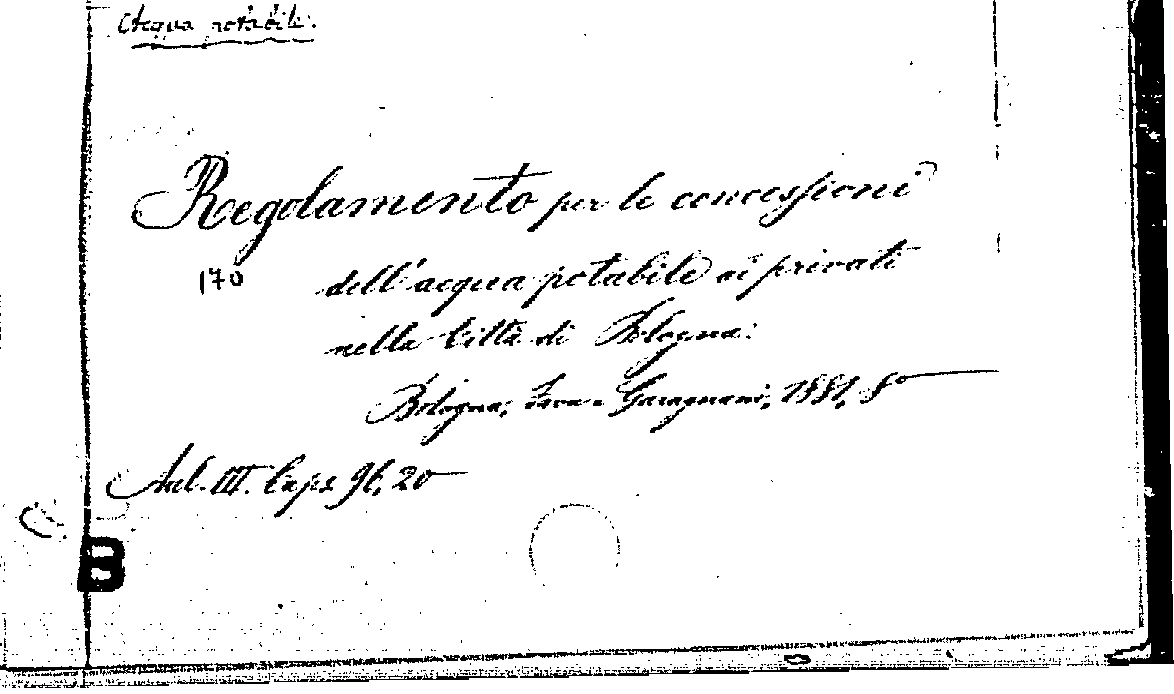 Acqua potabile.
Regolamento per le concessioni
170 dell'acqua potabile ai privati
nella Città di Bologna.
Bologna, Garagnani, 1881, 8°
Aul. III. Caps. 96, 20
B